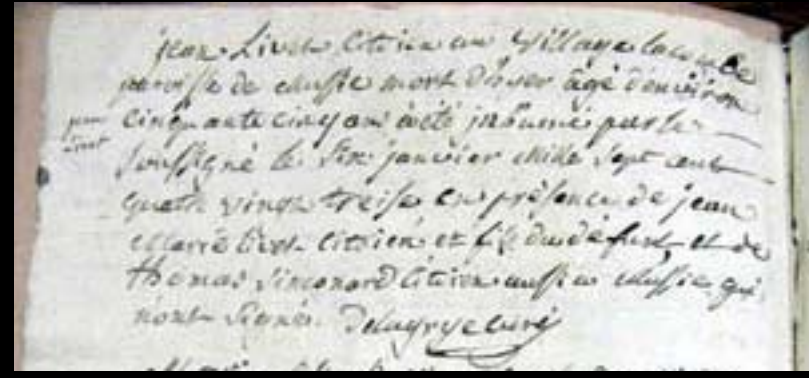 jean Livet Citoien au village
paroisse de mort d'hyer âgé d'environ
cinquante cinq ans a été inhumé par le
jean
Livet
soussigné le six janvier mille sept cent
quatre vingt treise en présence de jean
Marie Livet Citoien et fils du défunt et de
thomas Simonard Citoien aussi qui
n'ont signés.